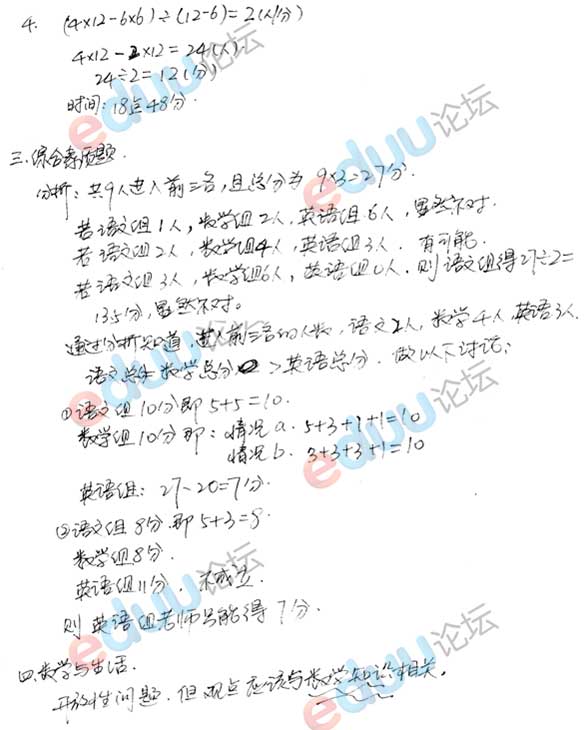 4. (4×12-6×6)÷(12-6)=2(人/分)
4×12-2×12=24(人)
24÷2=12(分)
时间:18点48分.
三.综合素质题.
分析:共9人进入前三名,且总分为 9×3=27分.
若语文组1人,数学组2人.英语组6人,显然不对.
若语文组2人,数学组4人,英语组3人.有可能.
若语文组3人,数学组6人,英语组0人.则语文组得27÷2=
13.5分,显然不对。
通过分析知道,进入前三名的人数,语文2人,数学4人,英语3人.
语文总分=数学总分>英语总分.做以下讨论:
①语文组10分即5+5=10.
数学组10分即:情况a. 5+3+1+1=10
情况b. 3+3+3+1=10
英语组:27-20=7分.
②语文组8分.即5+3=8.
数学组8分.
英语组11分.不成立.
则英语组老师只能得7分.
四.数学与生活.
开放性问题.但观点应该与数学知识相关.
eduu论坛
eduu论坛
eduu论坛
eduu论坛
eduu论坛
eduu论坛